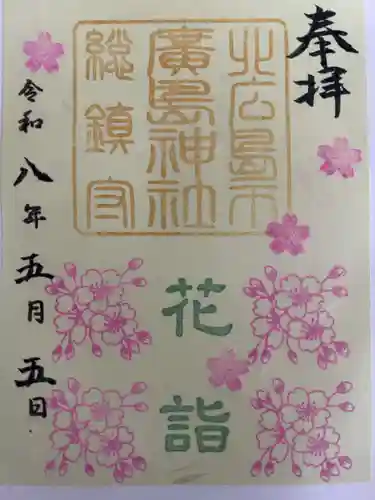 奉拝
北広島市
廣島神社
総鎮守
花詣
令和八年五月五日